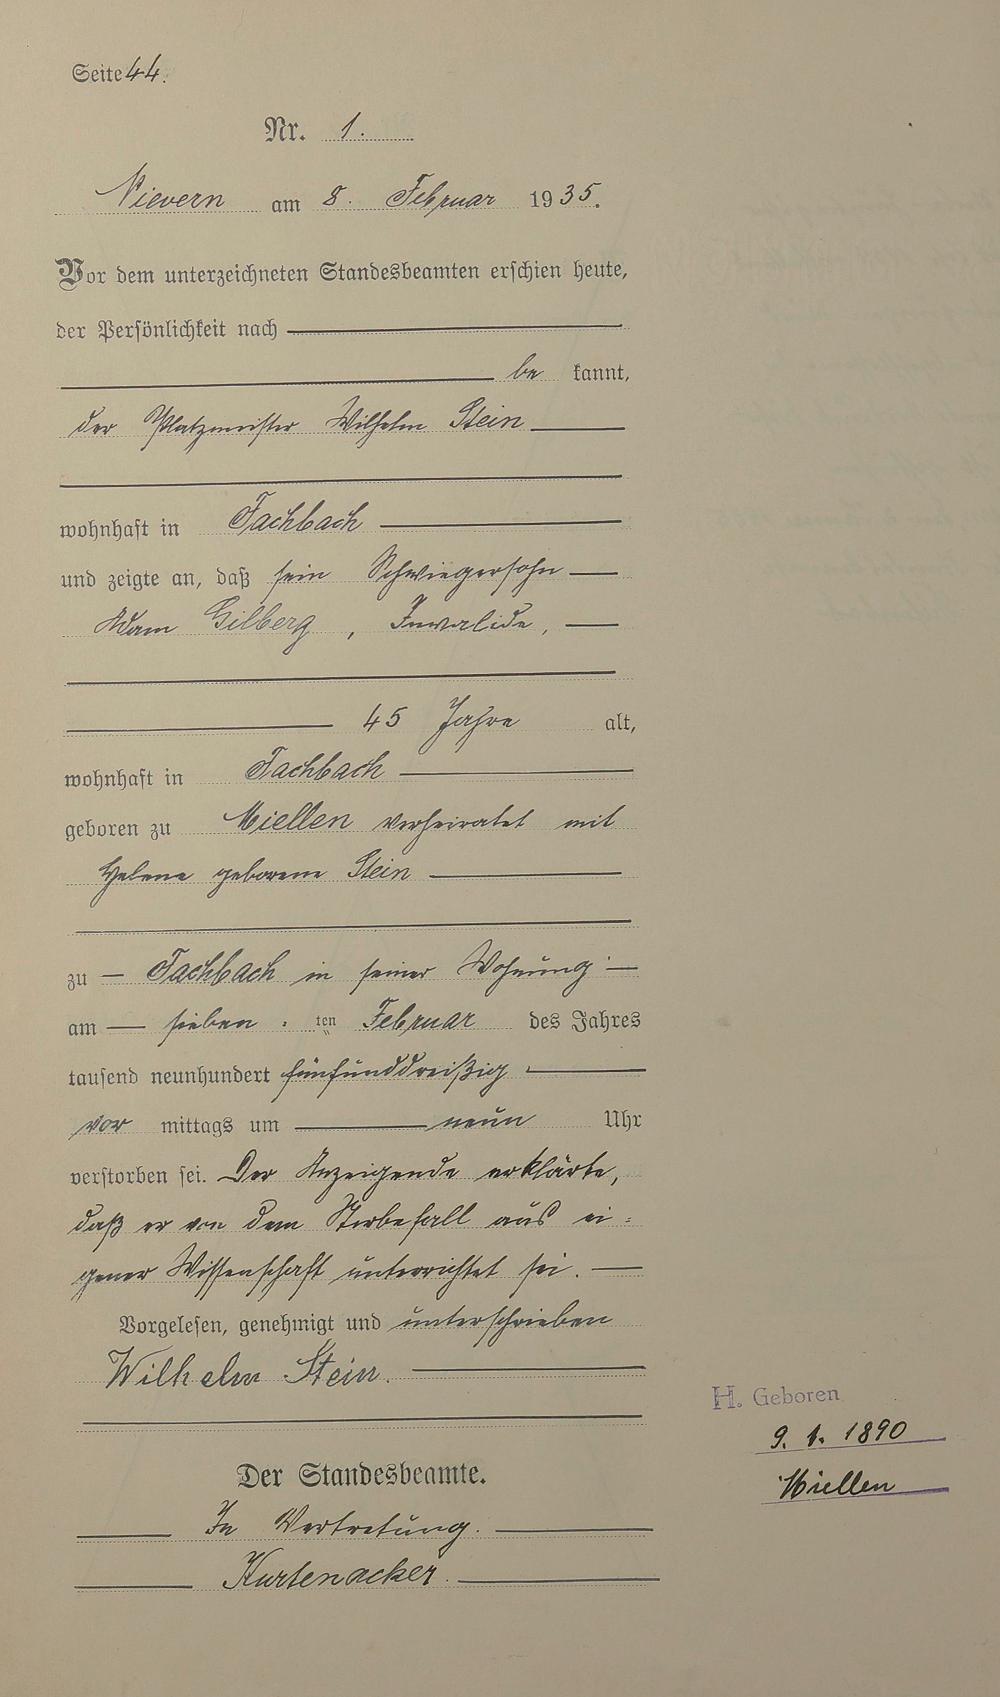 Seite 44.
Nr. 1.
Nievern am 8. Februar 1935.
Vor dem unterzeichneten Standesbeamten erschien heute,
der Persönlichkeit nach
be kannt,
der Platzmeister Wilhelm Stein
wohnhaft in Fachbach
und zeigte an, daß sein Schwiegersohn
Adam Gilberg, Invalide,
45 Jahre alt,
wohnhaft in Fachbach
geboren zu Miellen verheiratet mit
Helene geborene Stein
zu Fachbach in seiner Wohnung
am sieben ten Februar des Jahres
tausend neunhundert fünfunddreißig
vor mittags um neun Uhr
verstorben sei. Der Anzeigende erklärte,
daß er von dem Sterbefall aus ei-
gener Wissenschaft unterrichtet sei.
Vorgelesen, genehmigt und unterschrieben
Wilhelm Stein.
H. Geboren
9. 1. 1890
Miellen
Der Standesbeamte.
In Vertretung.
Kurtenacker.